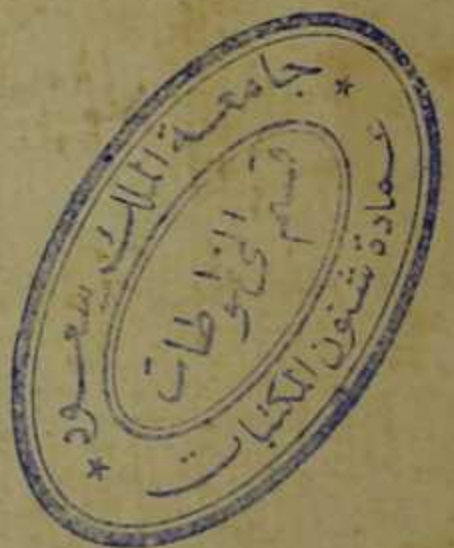 * جامعة الملك سعود *
عمادة شئون المكتبات
قسم
المخطوطات